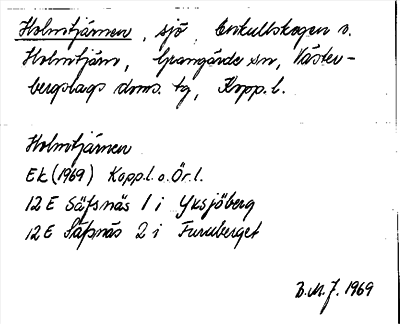 Holmtjärnen, sjö, Enkullskogen v.
Holmtjärn, Grangärde sn, Väster-
bergslags doms. tg, Kopp. l.
Holmtjärnen
Ek (1969) Kopp.l. o. Ör. l.
12 E Säfsnäs 1 i Yksjöberg
12 E Säfsnäs 2 i Furuberget
B.M.J. 1969